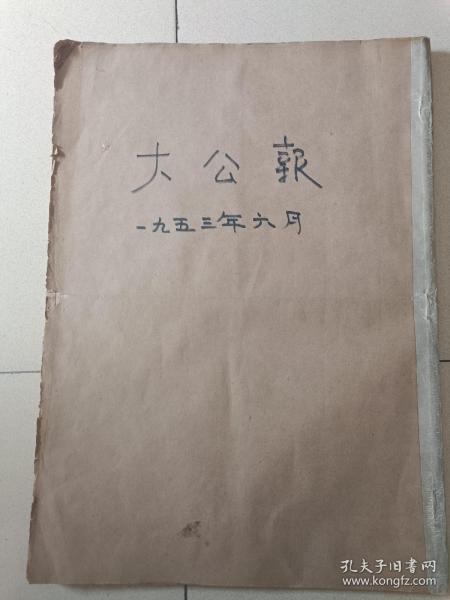 大公報
一九五三年六月
孔夫子旧书网
www.kongfz.com